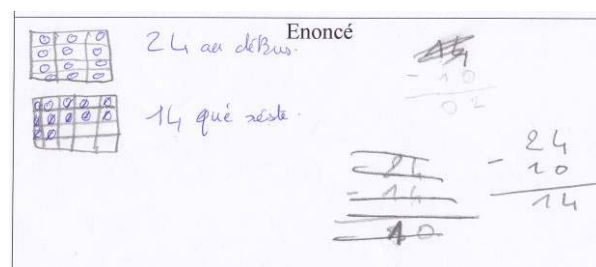 Enoncé
24 au déBus.
14 qué reste.
- 10
02
24
- 14
10
24
- 10
14